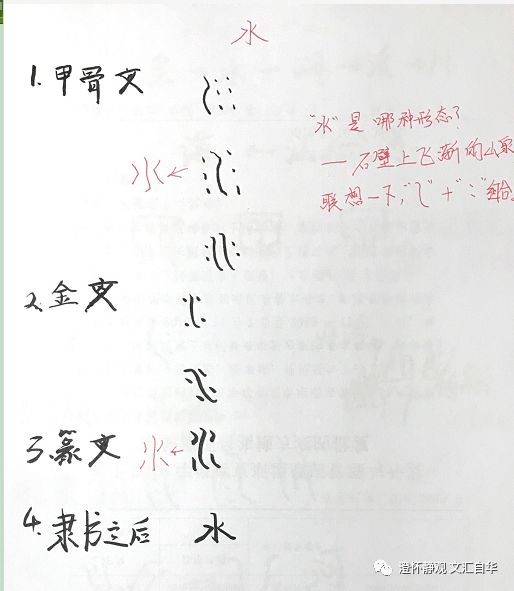 水
1.甲骨文
"水"是哪种形态?
—石壁上飞溅的山泉
联想一下,"乀"+":"组合。
2.金文
3.篆文
4.隶书之后 水
澄怀静观 文汇自华